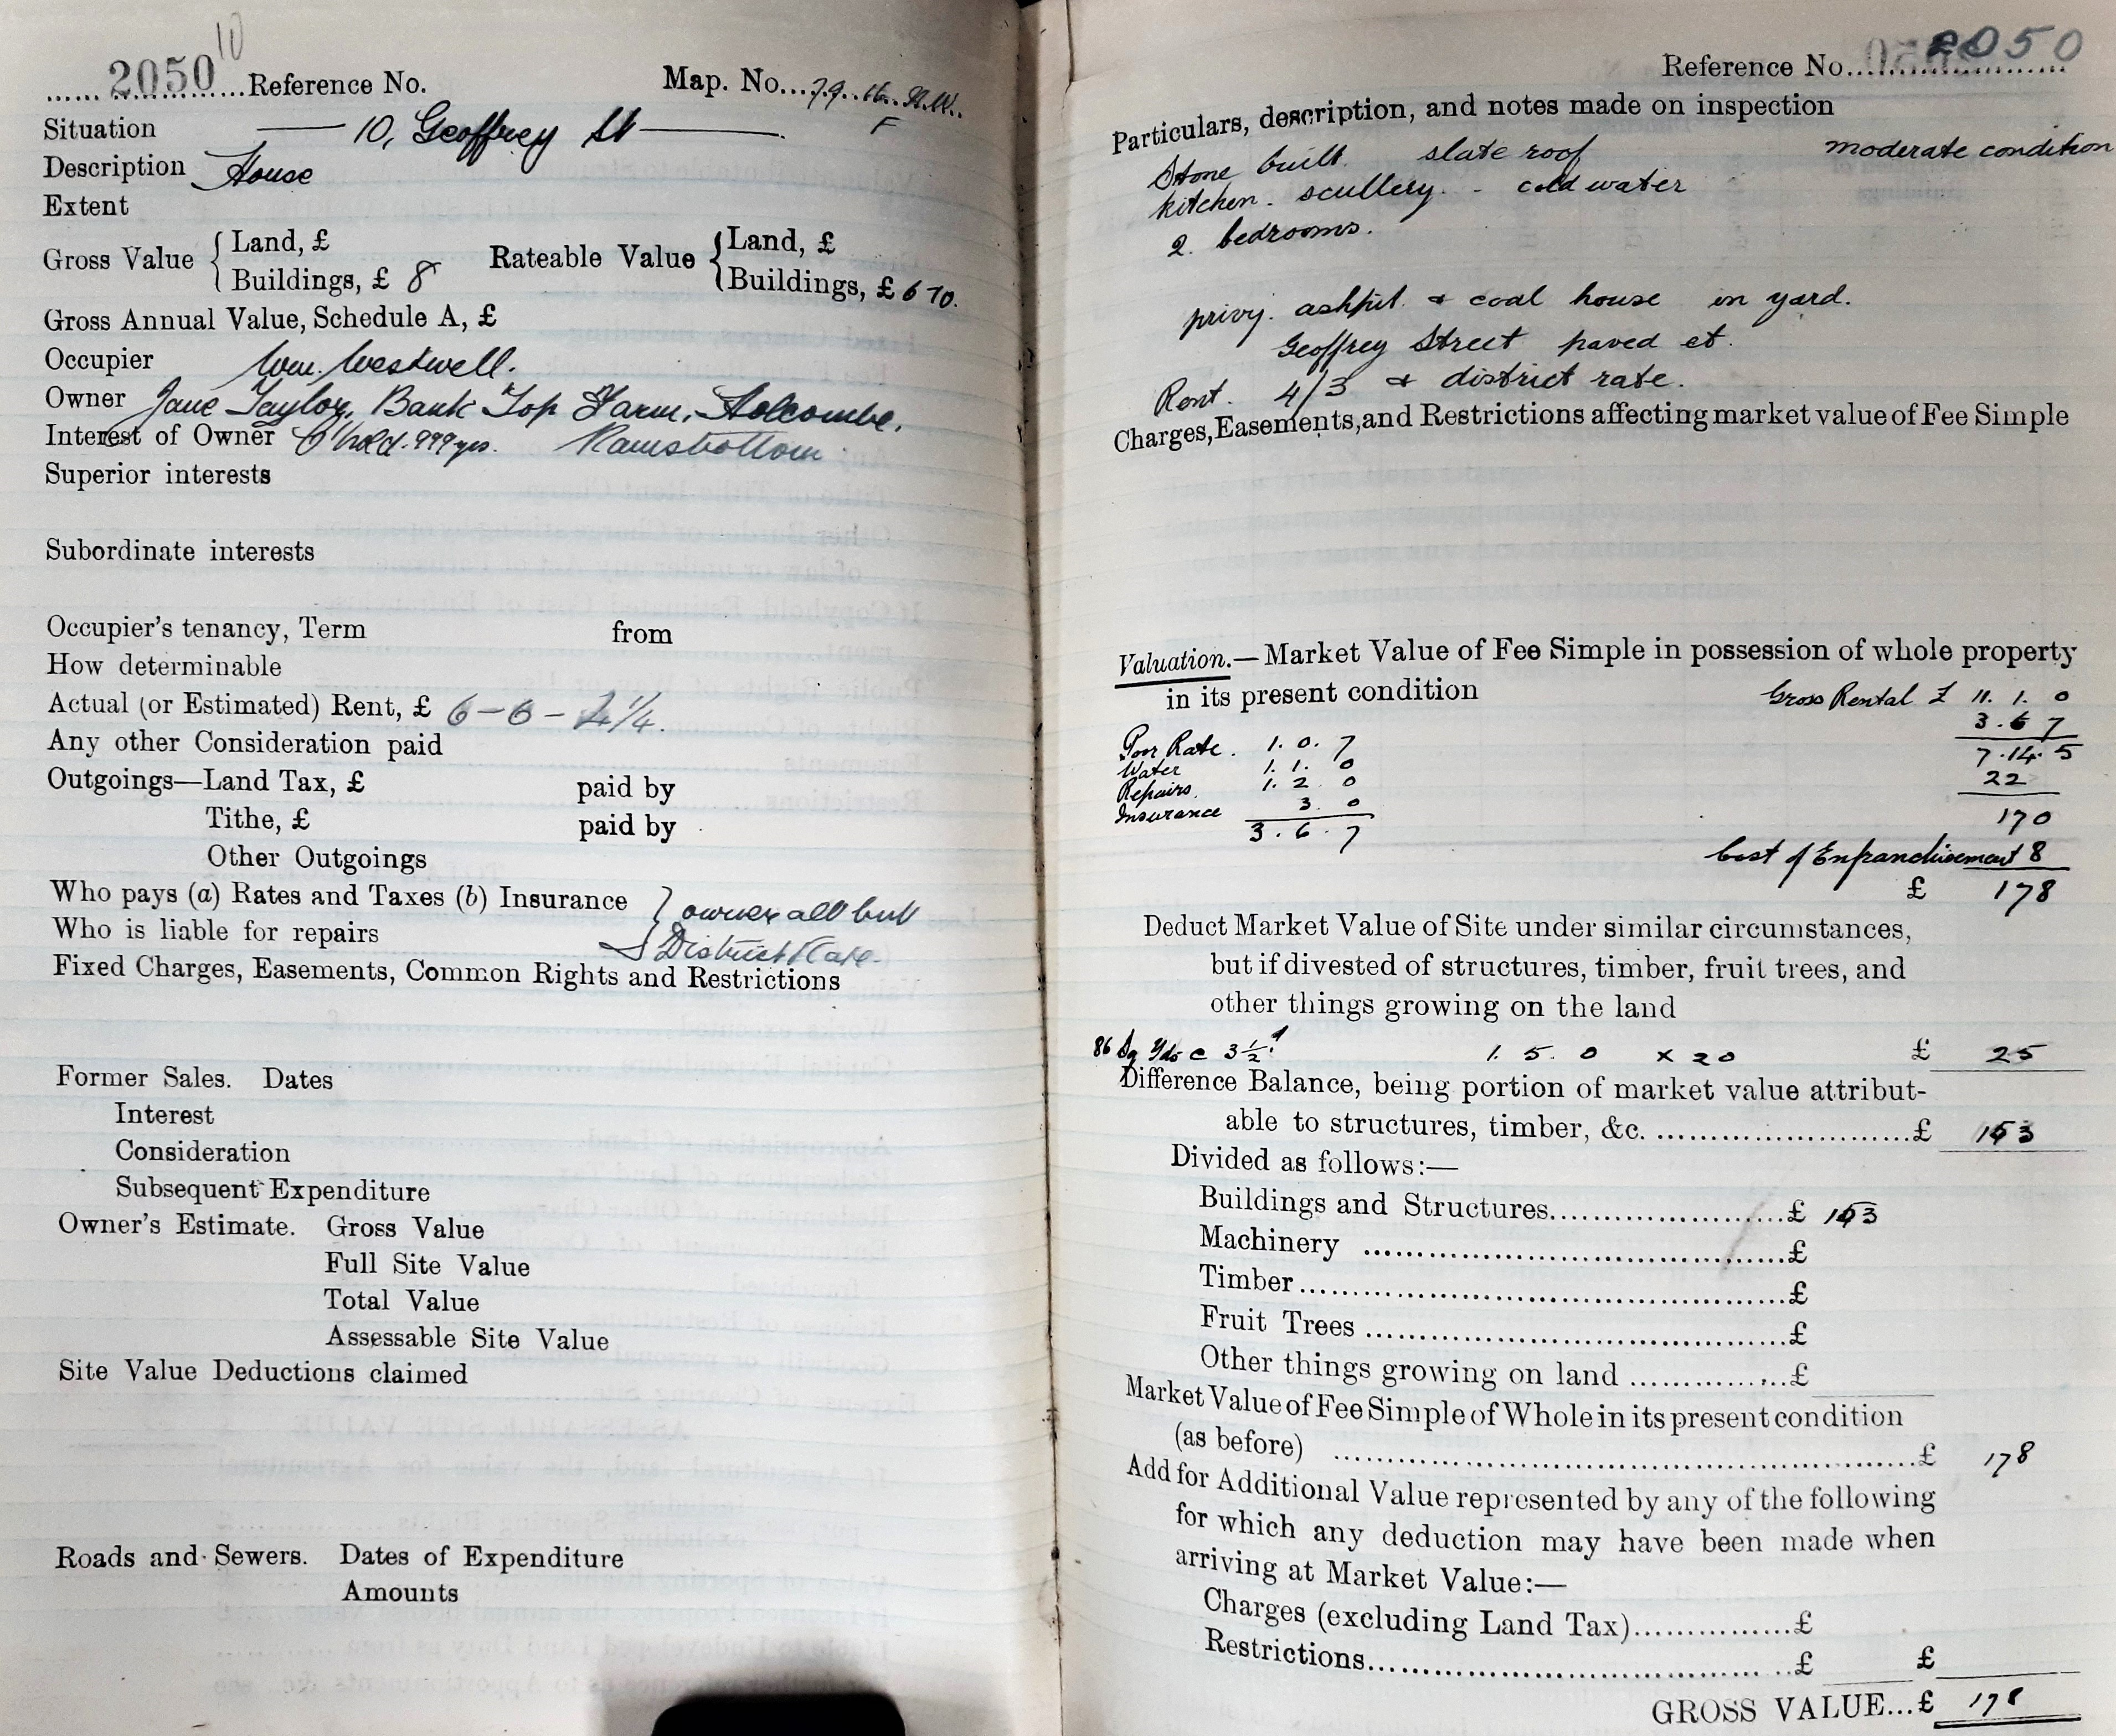 2050 10 Reference No. Map. No. 79.16.N.W.
F
Situation 10, Geoffrey St
Description House
Extent
Gross Value { Land, £ Rateable Value { Land, £
Buildings, £ 8 Buildings, £ 6 10.
Gross Annual Value, Schedule A, £
Occupier Wm. Westwell.
Owner Jane Taylor, Bank Top Farm, Holcombe,
Interest of Owner C'hold. 999 yrs. Ramsbottom
Superior interests
Subordinate interests
Occupier's tenancy, Term from
How determinable
Actual (or Estimated) Rent, £ 6-6-
Any other Consideration paid
Outgoings—Land Tax, £ paid by
Tithe, £ paid by
Other Outgoings
Who pays (a) Rates and Taxes (b) Insurance } owner all but
Who is liable for repairs District Rate
Fixed Charges, Easements, Common Rights and Restrictions
Former Sales. Dates
Interest
Consideration
Subsequent Expenditure
Owner's Estimate. Gross Value
Full Site Value
Total Value
Assessable Site Value
Site Value Deductions claimed
Roads and Sewers. Dates of Expenditure
Amounts
Reference No. 2050
Particulars, description, and notes made on inspection
Stone built. slate roof moderate condition
kitchen - scullery. - cold water
2. bedrooms.
privy. ashpit. & coal house in yard.
Geoffrey Street paved et.
Rent. 4/3 & district rate.
Charges, Easements, and Restrictions affecting market value of Fee Simple
Valuation.—Market Value of Fee Simple in possession of whole property
in its present condition Gross Rental £ 11. 1. 0
3. 6 7
Poor Rate. 1. 0. 7 7. 14. 5
Water 1. 1. 0 22
Repairs. 1. 2. 0
Insurance 3. 0 170
3. 6. 7
Cost of Enfranchisement 8
£ 178
Deduct Market Value of Site under similar circumstances,
but if divested of structures, timber, fruit trees, and
other things growing on the land
86 Sq Yds @ 3½d 1. 5. 0 x 20 £ 25
Difference Balance, being portion of market value attribut-
able to structures, timber, &c. £ 153
Divided as follows:—
Buildings and Structures £ 153
Machinery £
Timber £
Fruit Trees £
Other things growing on land £
Market Value of Fee Simple of Whole in its present condition
(as before) £ 178
Add for Additional Value represented by any of the following
for which any deduction may have been made when
arriving at Market Value:—
Charges (excluding Land Tax) £
Restrictions £ £
GROSS VALUE...£ 178